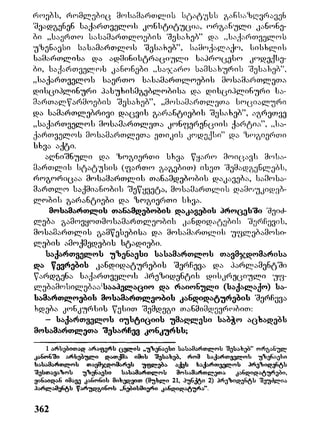 როებს, რომლებიც მოსამართლის სტატუსს განსაზღვრავენ
შეადგენენ საქართველოს კონსტიტუცია, ორგანული კანონე-
ბი „საერთო სასამართლოების შესახებ" და „საქართველოს
უზენაესი სასამართლოს შესახებ", სამოქალაქო, სისხლის
სამართლისა და ადმინისტრაციული საპროცესო კოდექსე-
ბი, საქართველოს კანონები „საჯარო სამსახურის შესახებ",
„საქართველოს საერთო სასამართლოების მოსამართლეთა
დისციპლინური პასუხისმგებლობისა და დისციპლინური სა-
მართალწარმოების შესახებ", „მოსამართლეთა სოციალური
და სამართლებრივი დაცვის გარანტიების შესახებ", აგრეთვე
„საქართველოს მოსამართლეთა კონფერენციის ქარტია", „სა-
ქართველოს მოსამართლეთა ეთიკის კოდექსი" და ზოგიერთი
სხვა აქტი.
აღნიშნული და ზოგიერთი სხვა წყარო მოიცავს მოსა-
მართლის სტატუსის (ფართო გაგებით) ისეთ შემადგენლებს,
როგორიცაა მოსამართლის თანამდებობის დაკავება, სამოსა-
მართლო საქმიანობის შეწყვეტა, მოსამართლის დამოუკიდებ-
ლობის გარანტიები და ზოგიერთი სხვა.
მოსამართლის თანამდებობის დაკავების პროცესში შეიძ-
ლება გამოვყოთმოსამართლეობის კანდიდატების შერჩევის,
მოსამართლის გამწესებისა და მოსამართლის უფლებამოსი-
ლების ამოქმედების სტადიები.
საქართველოს უზენაესი სასამართლოს თავმჯდომარისა
და წევრების კანდიდატურების შერჩევა და პარლამენტში
წარდგენა საქართველოს პრეზიდენტის დისკრეციული უფ-
ლებამოსილებაა¹სააპელაციო და რაიონული (საქალაქო) სა-
სამართლოების მოსამართლეობის კანდიდატურების შერჩევა
ხდება კონკურსის წესით შემდეგი თანმიმდევრობით:
– საქართველოს იუსტიციის უმაღლესი საბჭო აცხადებს
მოსამართლეთა შესარჩევ კონკურსს;
1 არსებითად არაფერს ცვლის „უზენაესი სასამართლოს შესახებ" ორგანულ
კანონში არსებული დათქმა იმის შესახებ, რომ საქართველოს უზენაესი
სასამართლოს თავმჯდომარეს უფლება აქვს საქართველოს პრეზიდენტს
შესთავაზოს უზენაესი სასამართლოს მოსამართლეთა კანდიდატურები,
ვინაიდან იმავე კანონის მიხედვით (მუხლი 21, პუნქტი 2) პრეზიდენტს შეუძლია
პარლამენტს წარუდგინოს „ნებისმიერი კანდიდატურა".
362